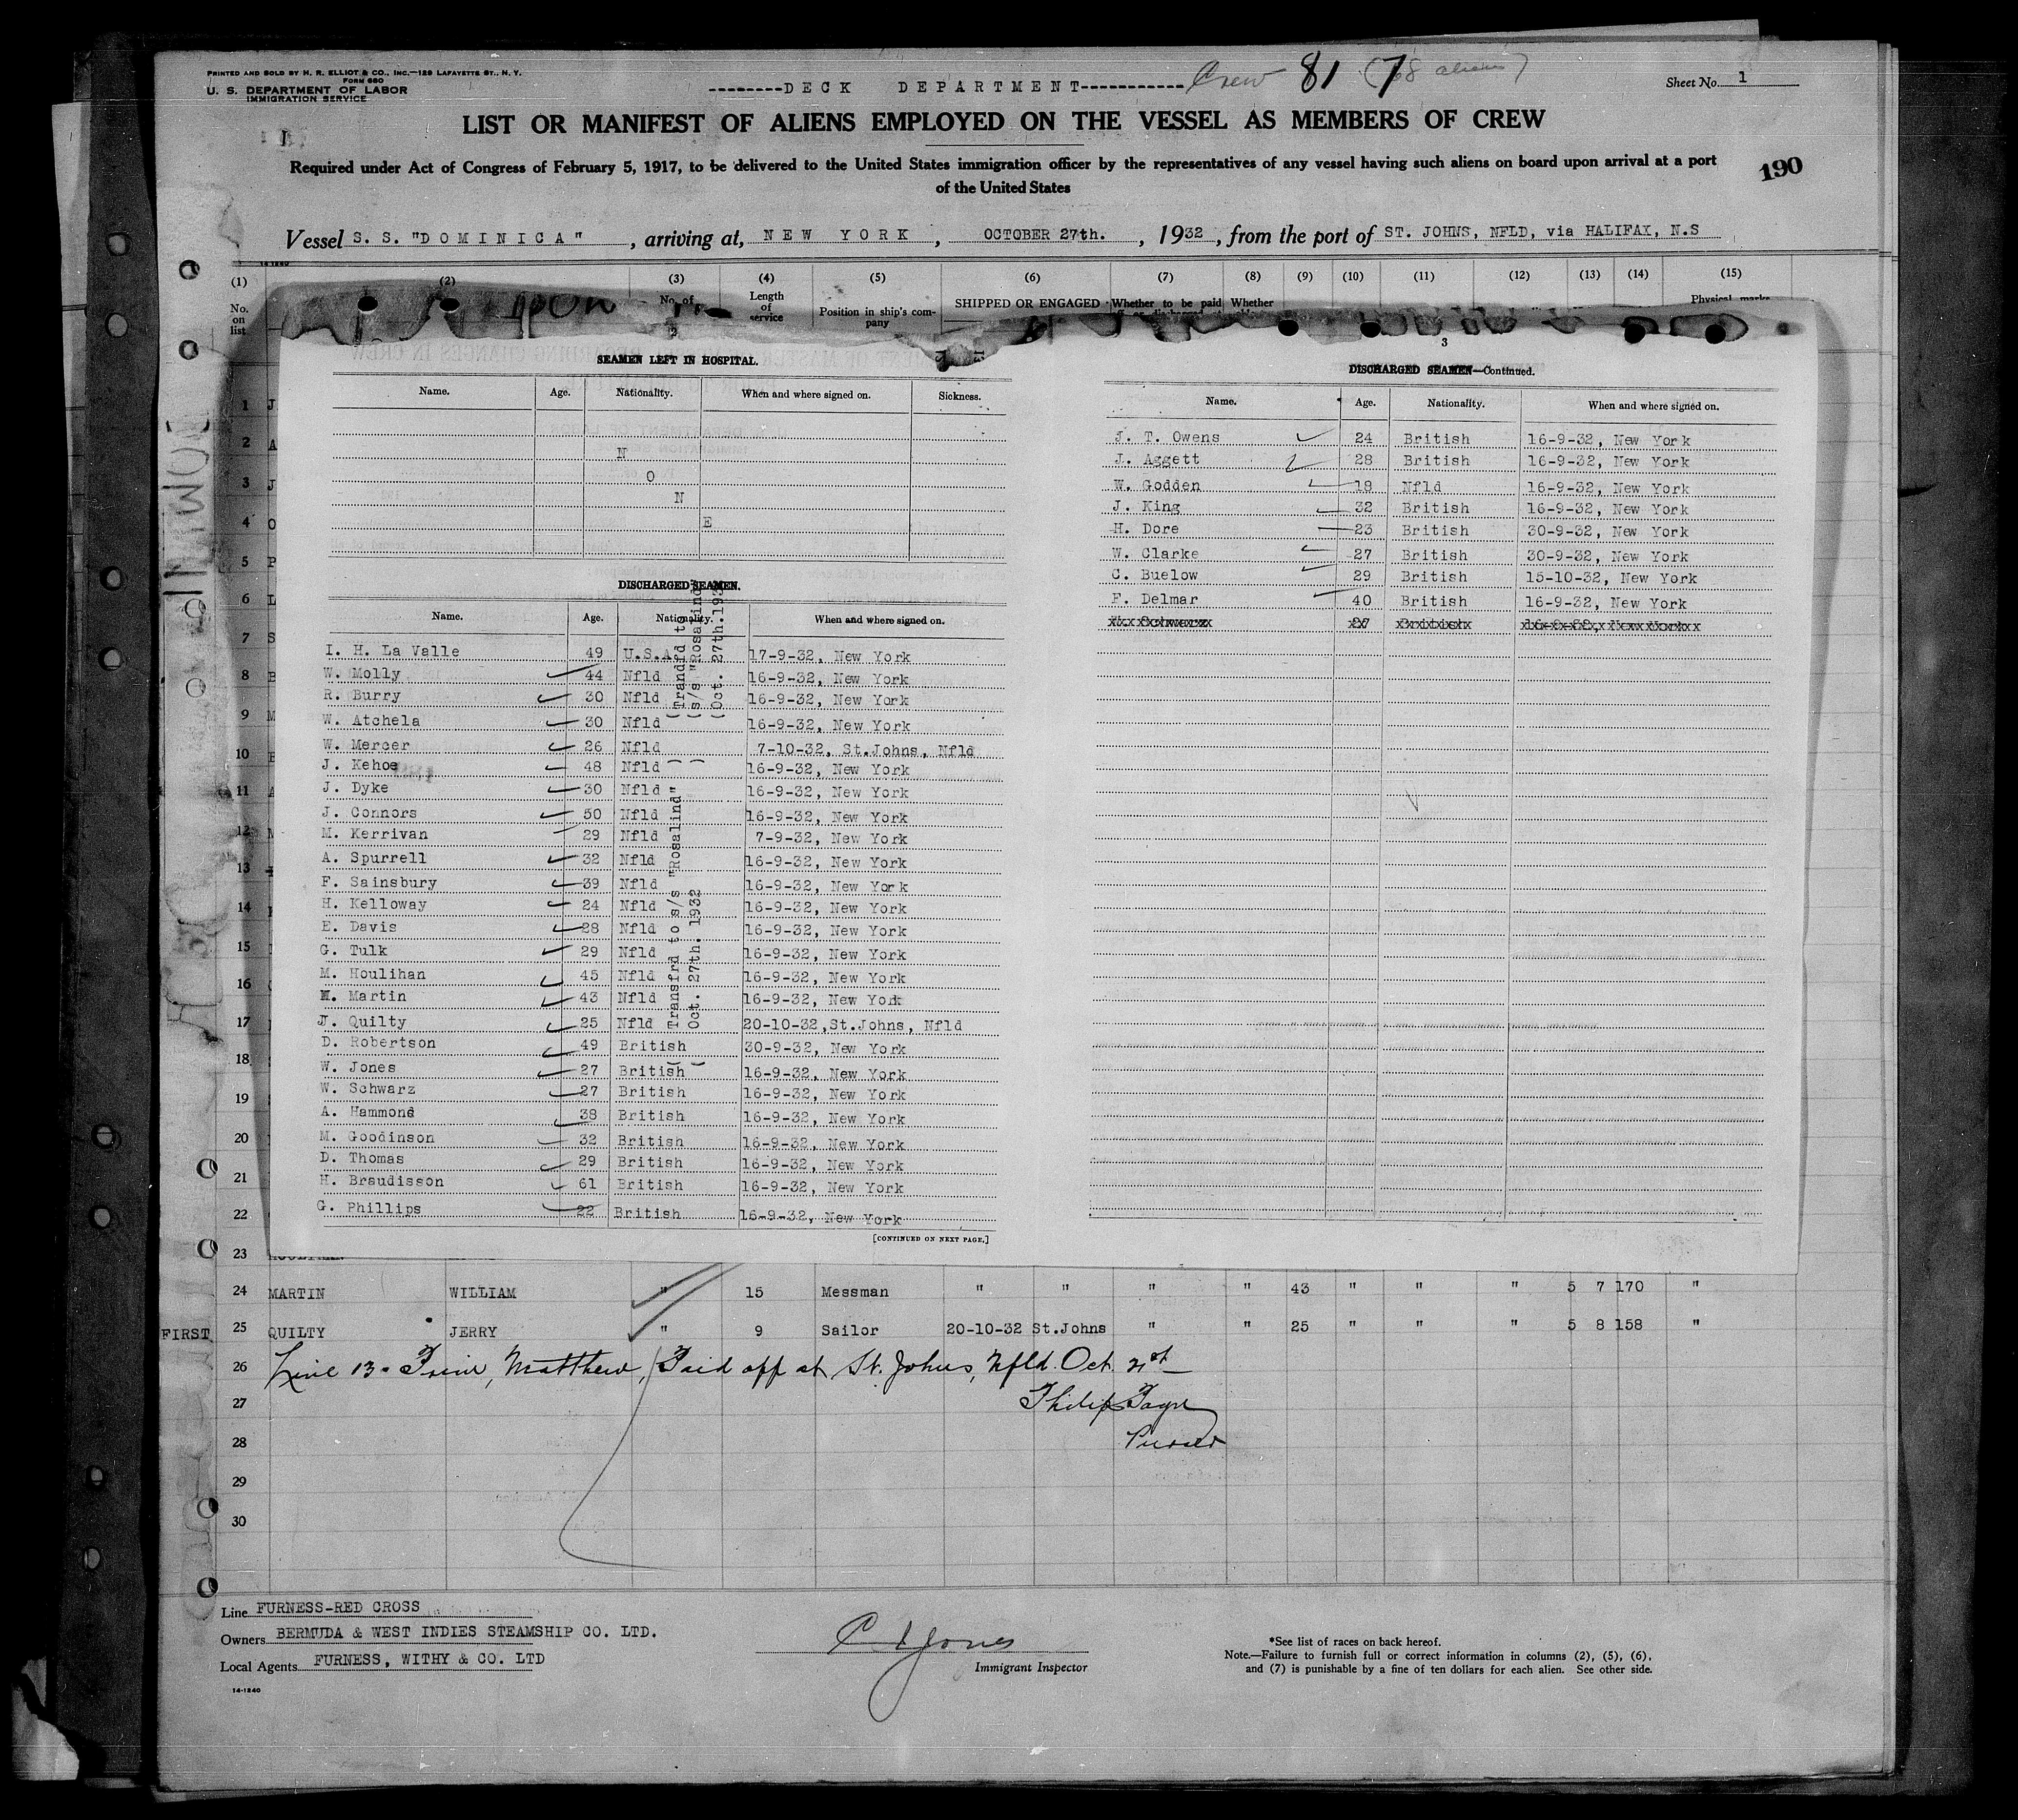 PRINTED AND SOLD BY H. R. ELLIOT & CO., INC.—129 LAFAYETTE ST., N. Y.
FORM 680
U. S. DEPARTMENT OF LABOR
IMMIGRATION SERVICE
--------DECK DEPARTMENT----------- Crew 81 (78 aliens)
Sheet No. 1
LIST OR MANIFEST OF ALIENS EMPLOYED ON THE VESSEL AS MEMBERS OF CREW
Required under Act of Congress of February 5, 1917, to be delivered to the United States immigration officer by the representatives of any vessel having such aliens on board upon arrival at a port
of the United States
190
Vessel S. S. "DOMINICA", arriving at, NEW YORK, OCTOBER 27th., 1932, from the port of ST. JOHNS, NFLD, via HALIFAX, N.S
(1) (2) (3) (4) (5) (6) (7) (8) (9) (10) (11) (12) (13) (14) (15)
No. on list
No. of
Length of service
Position in ship's company
SHIPPED OR ENGAGED
Whether to be paid
Whether
Physical marks
2
SEAMEN LEFT IN HOSPITAL.
Name. Age. Nationality. When and where signed on. Sickness.
N
O
N
E
DISCHARGED SEAMEN.
Name. Age. Nationality. When and where signed on.
I. H. La Valle 49 U.S.A. 17-9-32, New York
W. Molly 44 Nfld 16-9-32, New York
R. Burry 30 Nfld 16-9-32, New York
W. Atchela 30 Nfld 16-9-32, New York
W. Mercer 26 Nfld 7-10-32, St.Johns, Nfld
J. Kehoe 48 Nfld 16-9-32, New York
J. Dyke 30 Nfld 16-9-32, New York
J. Connors 50 Nfld 16-9-32, New York
M. Kerrivan 29 Nfld 7-9-32, New York
A. Spurrell 32 Nfld 16-9-32, New York
F. Sainsbury 39 Nfld 16-9-32, New York
H. Kelloway 24 Nfld 16-9-32, New York
E. Davis 28 Nfld 16-9-32, New York
G. Tulk 29 Nfld 16-9-32, New York
M. Houlihan 45 Nfld 16-9-32, New York
Martin 43 Nfld 16-9-32, New York
J. Quilty 25 Nfld 20-10-32, St.Johns, Nfld
D. Robertson 49 British 30-9-32, New York
W. Jones 27 British 16-9-32, New York
W. Schwarz 27 British 16-9-32, New York
A. Hammond 38 British 16-9-32, New York
M. Goodinson 32 British 16-9-32, New York
D. Thomas 29 British 16-9-32, New York
H. Braudisson 61 British 16-9-32, New York
G. Phillips 22 British 16-9-32, New York
[CONTINUED ON NEXT PAGE.]
(Trandfd to
(s/s "Rosalind
(Oct. 27th.193
Transfrd to s/s "Rosalind"
Oct. 27th. 1932
3
DISCHARGED SEAMEN—Continued.
Name. Age. Nationality. When and where signed on.
J. T. Owens 24 British 16-9-32, New York
J. Aggett 28 British 16-9-32, New York
W. Godden 18 Nfld 16-9-32, New York
J. King 32 British 16-9-32, New York
H. Dore 23 British 30-9-32, New York
W. Clarke 27 British 30-9-32, New York
C. Buelow 29 British 15-10-32, New York
F. Delmar 40 British 16-9-32, New York
1 J
2 A
3 J
4 O
5 P
6 L
7 S
8 B
9 M
10
11 A
12 M
13
14
15
16
17
18
19
20
21
22
23
24 MARTIN WILLIAM " 15 Messman " " " " 43 " " " 5 7 170 "
FIRST 25 QUILTY JERRY " 9 Sailor 20-10-32 St.Johns " " 25 " " " 5 8 158 "
26 Line 13 - Matthew, Paid off at St. Johns, Nfld. Oct. 21st
27 Philip
28 Purser
29
30
Line FURNESS-RED CROSS
Owners BERMUDA & WEST INDIES STEAMSHIP CO. LTD.
Local Agents FURNESS, WITHY & CO. LTD
14-1240
Jones
Immigrant Inspector
*See list of races on back hereof.
Note.—Failure to furnish full or correct information in columns (2), (5), (6),
and (7) is punishable by a fine of ten dollars for each alien. See other side.